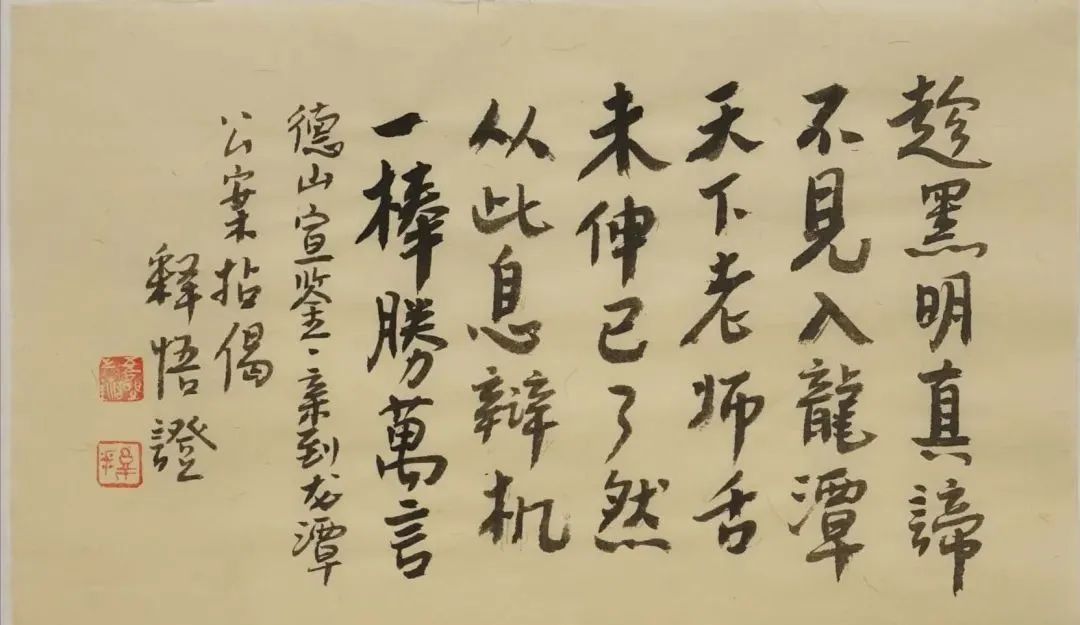 趁黑明真諦
不見入龍潭
天下老师舌
未伸已了然
从此息辯机
一棒勝萬言
德山宣鉴、亲到龙潭
公案拈偈
释悟證